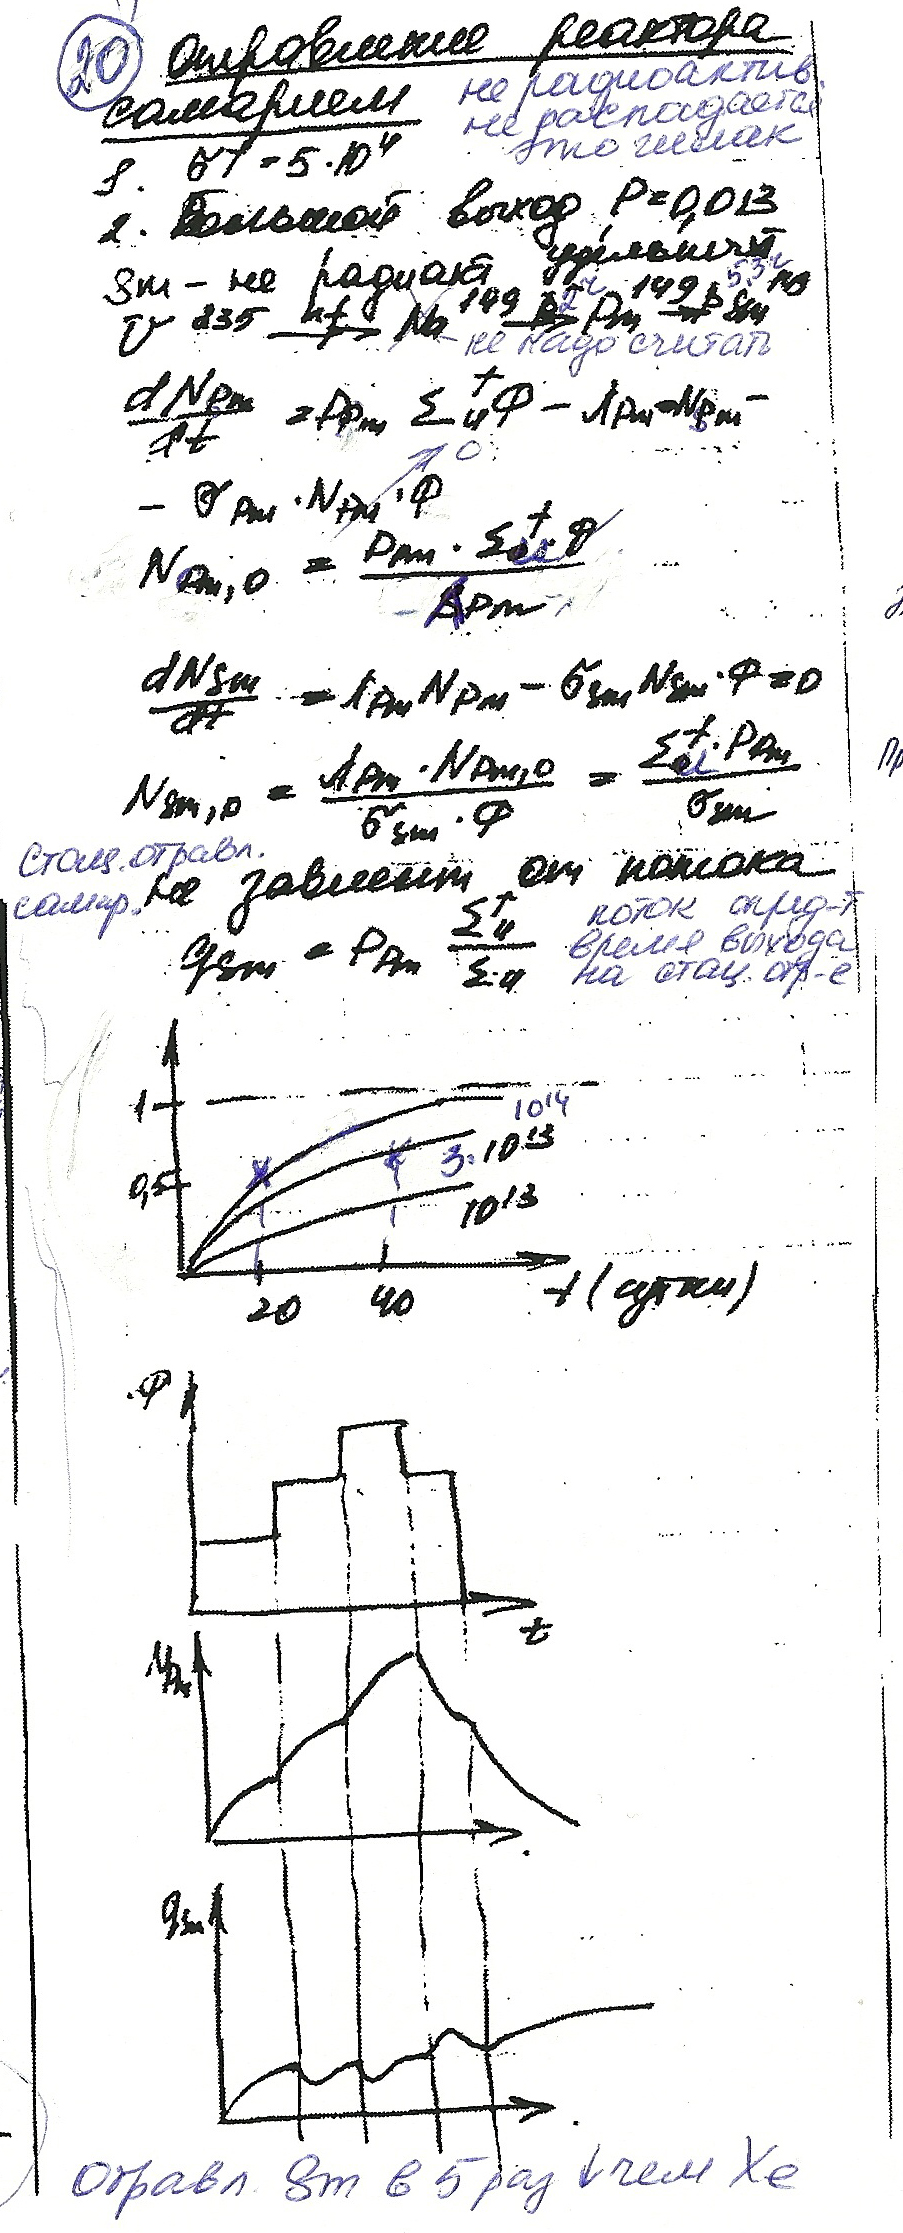 20 Отравление реактора
самарием
не радиоактив.
не распадается
это шлак
1. σт = 5·10⁴
2. Большой выход P=0,013
Sm – не радиакт удельный
U 235 nf→ Na 149 β→ Pm 149 β→ Sm 149
53ч
не надо считать
dNPm/dt = PPm Σuf Φ – λPm NPm –
– σPm · NPm · Φ
→0
NPm,0 = PPm · Σuf Φ / λPm
dNSm/dt = λPm NPm – σSm NSm · Φ = 0
NSm,0 = λPm · NPm,0 / σSm · Φ = Σuf · PPm / σSm
стац. отравл.
самар. не зависит от потока
qSm = PPm Σuf / Σu
поток опред-т
время выхода
на стац. отр-е
1
10¹⁴
3·10¹³
0,5
10¹³
20 40 t (сутки)
Φ
t
NPm
qSm
Отравл. Sm в 5 раз ↓ чем Xe